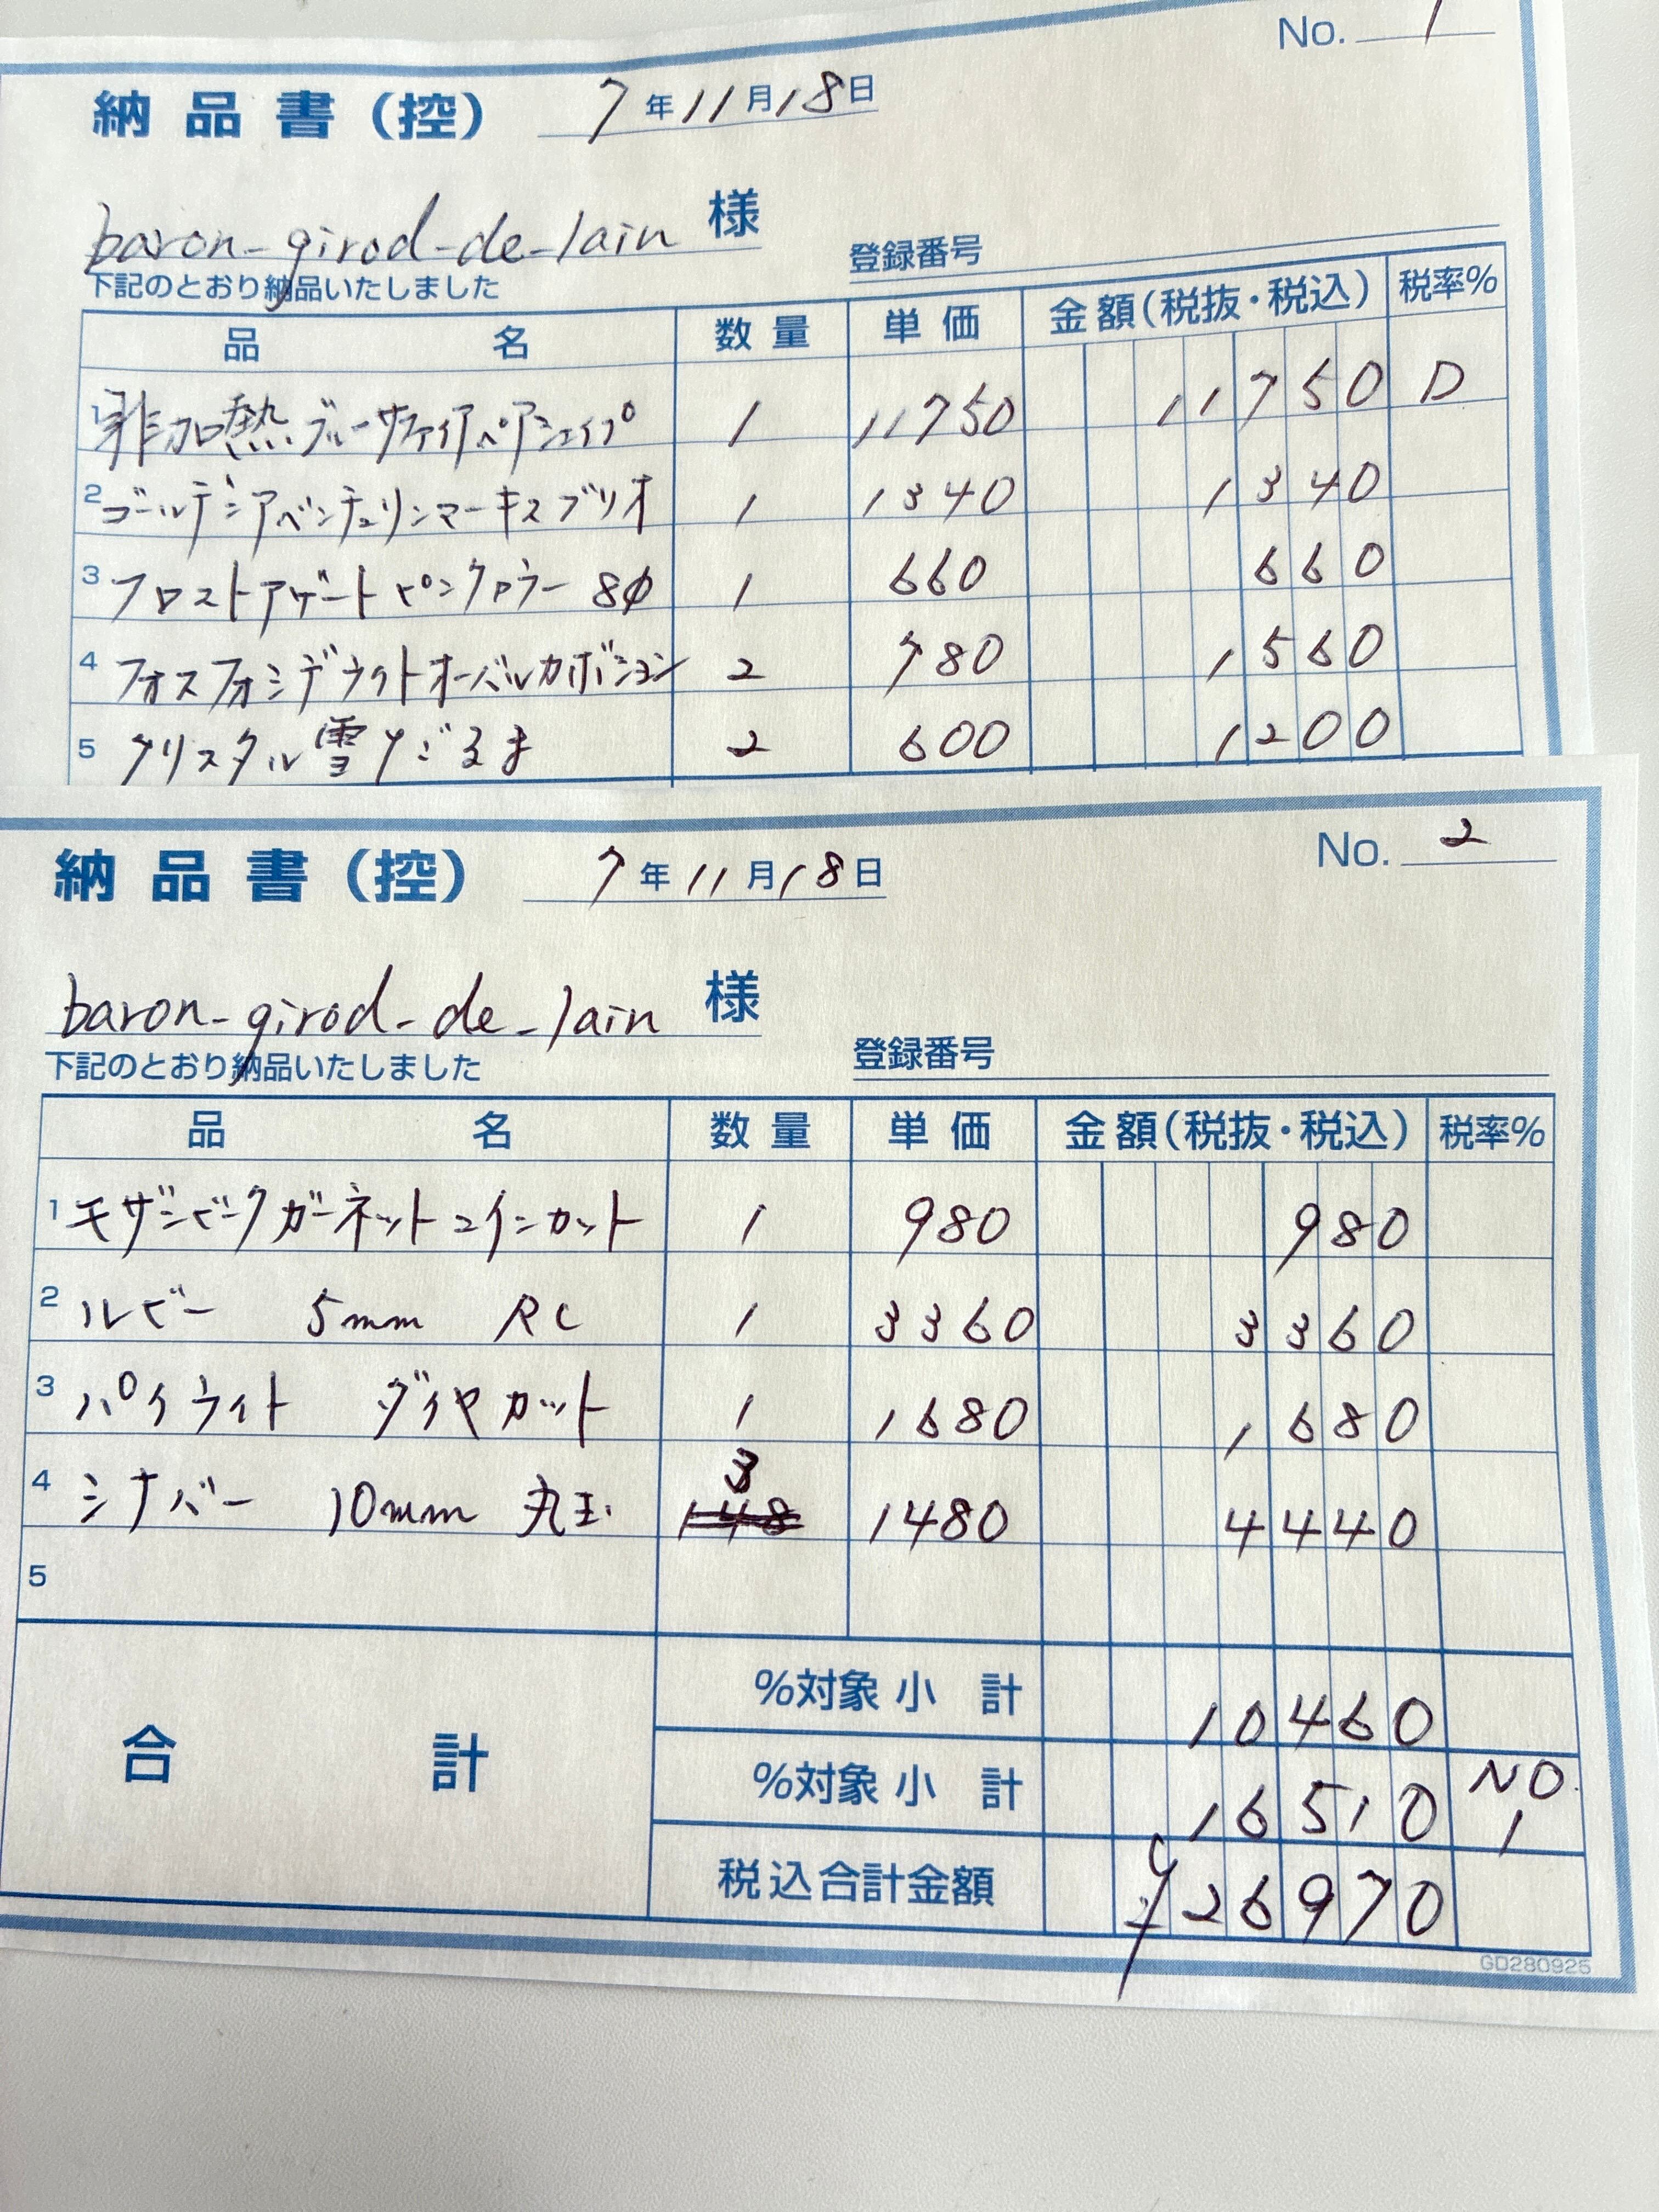 No. 1
納品書(控) 7年11月18日
baron-girod-de-lain 様
登録番号
下記のとおり納品いたしました
品名 数量 単価 金額(税抜・税込) 税率%
1 非加熱ブルーサファイアペアシェイプ 1 11750 11750 D
2 ゴールデンアベンチュリンマーキスブリオ 1 1340 1340
3 フロストアゲートピンクカラー 8φ 1 660 660
4 フォスフォシデライトオーバルカボション 2 780 1560
5 クリスタル雪だるま 2 600 1200
No. 2
納品書(控) 7年11月18日
baron-girod-de-lain 様
登録番号
下記のとおり納品いたしました
品名 数量 単価 金額(税抜・税込) 税率%
1 モザンビークガーネットコインカット 1 980 980
2 ルビー 5mm RC 1 3360 3360
3 パイライト ダイヤカット 1 1680 1680
4 シナバー 10mm 丸玉 3 1480 4440
5
合計
%対象小計 10460
%対象小計 16510 NO.1
税込合計金額 ¥26970
GD280925